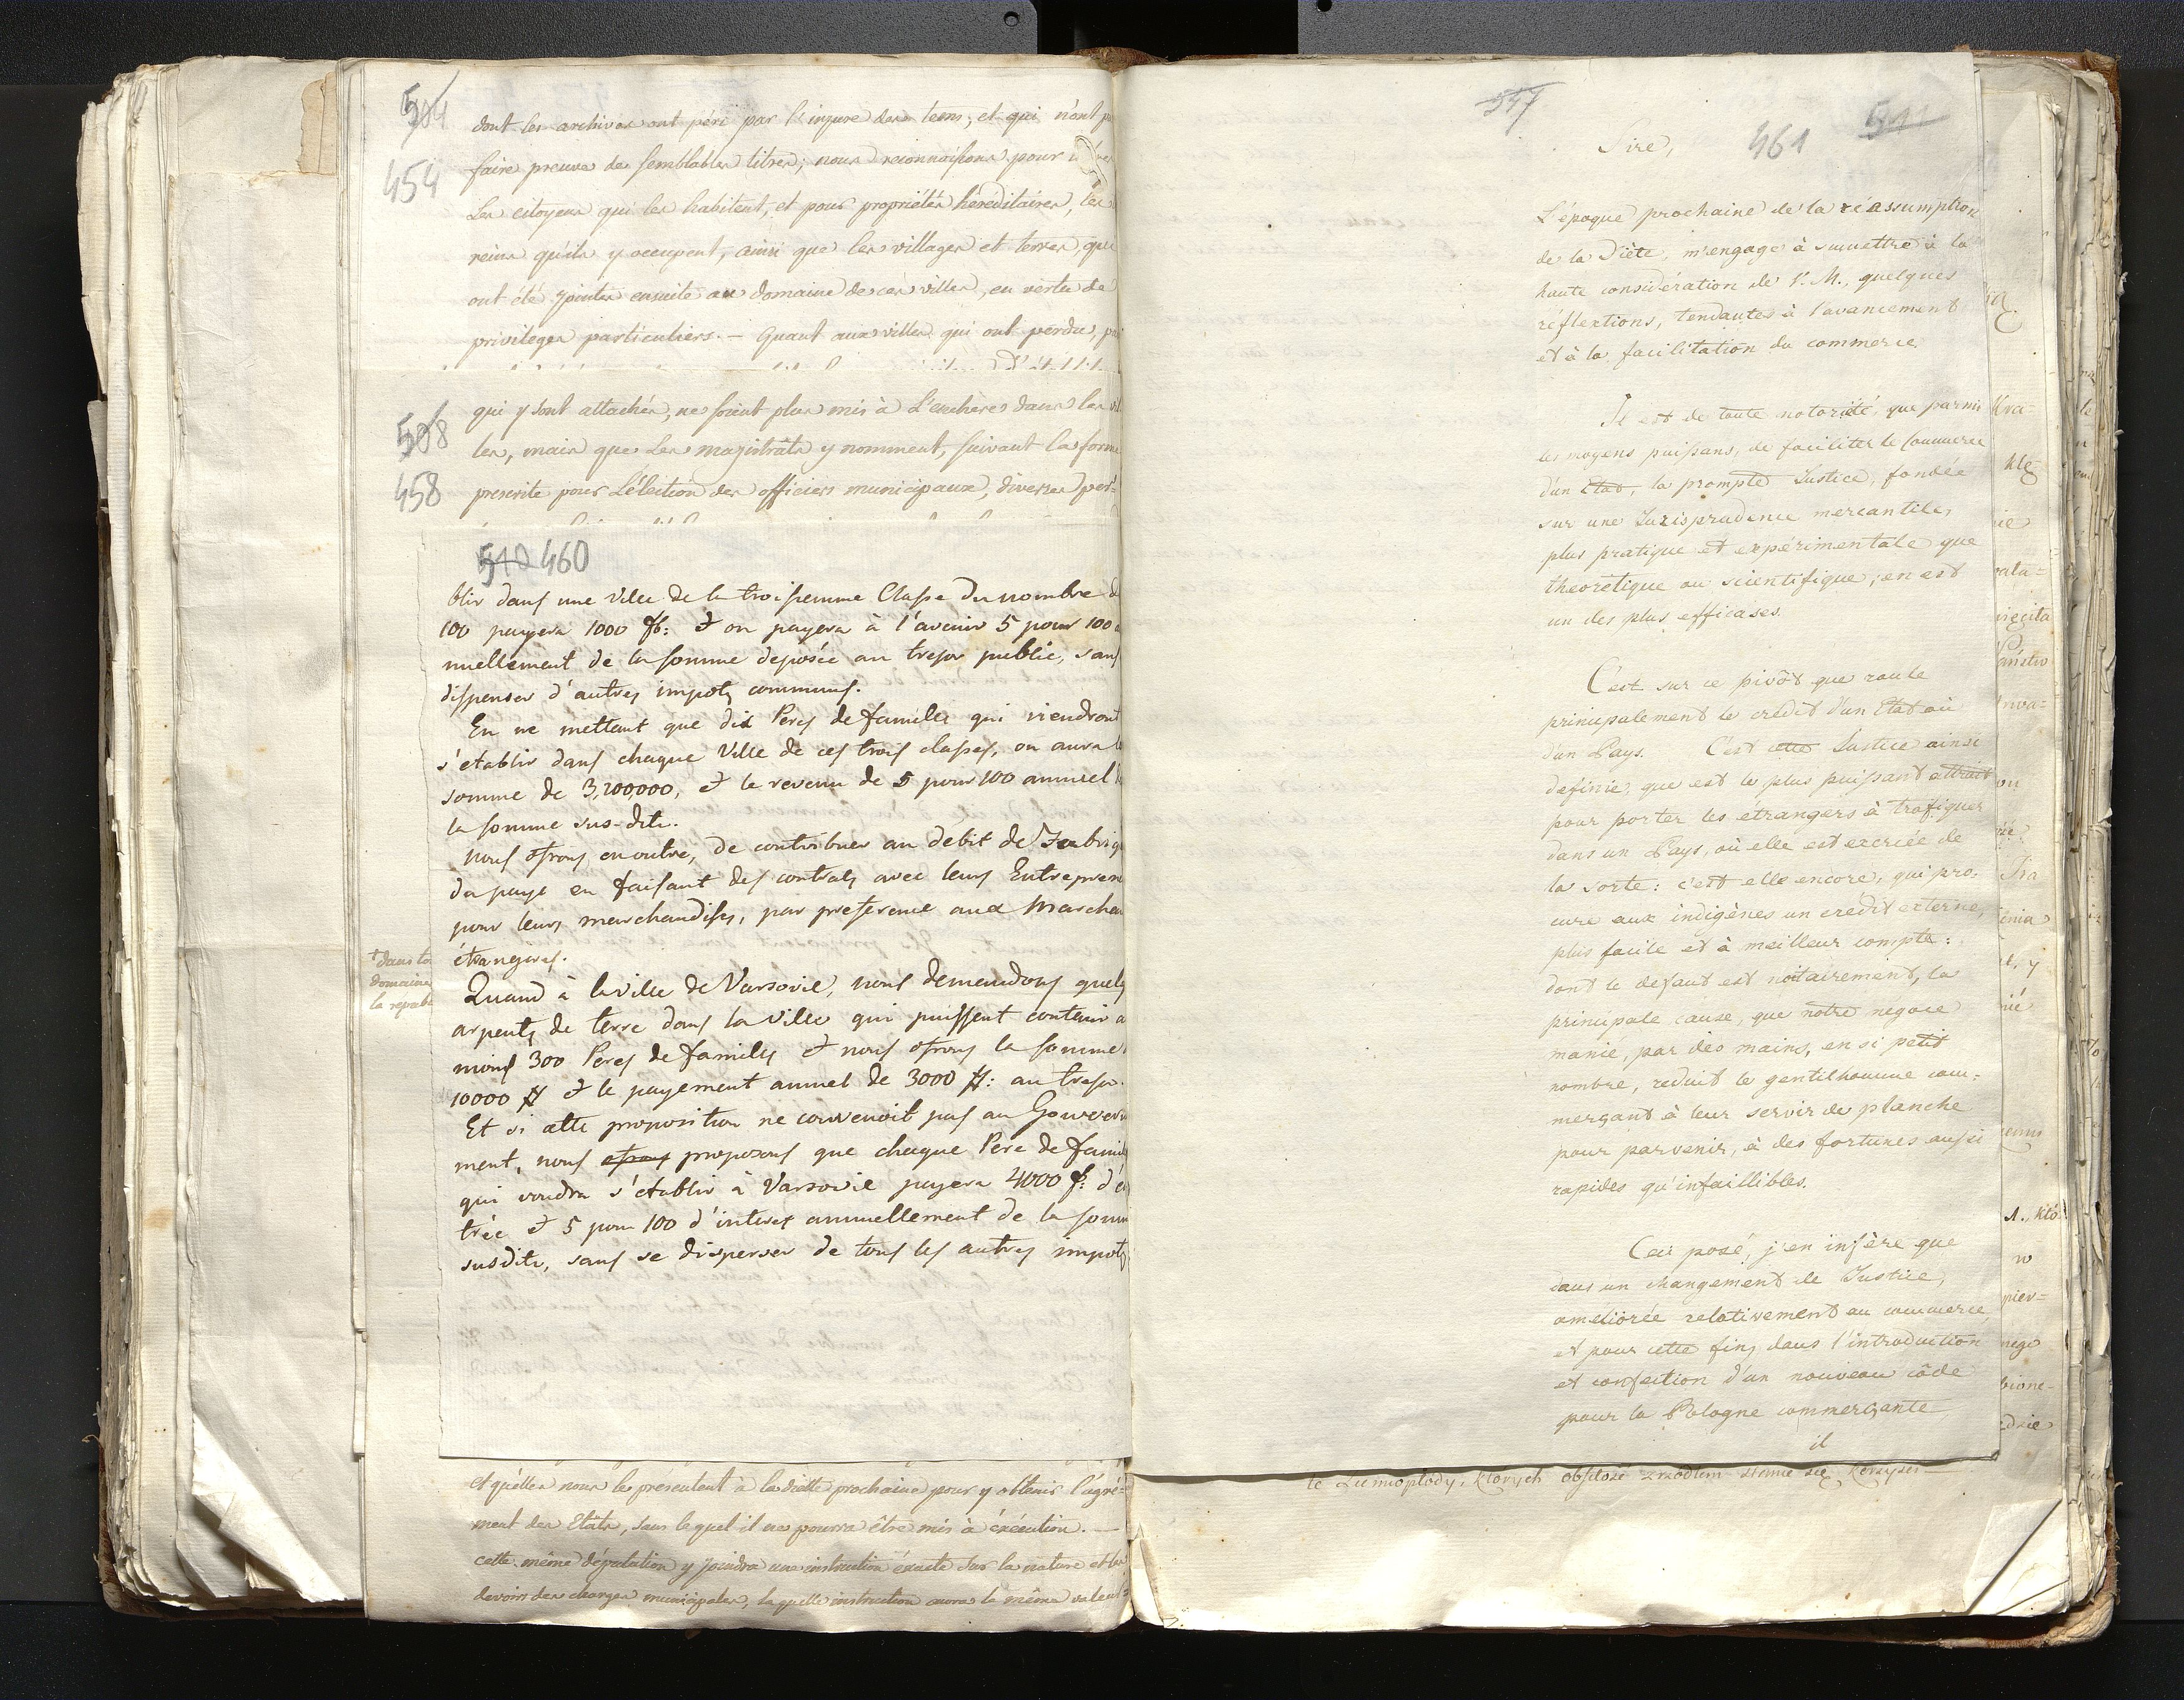 504
454
dont les archives ont péri par l'injure des tems, et qui n'ont
faire preuve de semblables titres; nous reconnoissons pour
Les citoyens qui les habitent, et pour propriétés héréditaires, les
reins qu'ils y occupent, ainsi que les villages et terres, qui
ont été jointes ensuite au domaine de ces villes, en vertu de
privileges particuliers. — Quant aux villes qui ont perdu,
508
458
qui y sont attachés, ne soient plus mis à L'enchère dans les
les, mais que Les magistrats y nomment, suivant la forme
prescrite pour L'élection des officiers municipaux, diverses per=
510 460
blir dans une Ville de la troisiemme Classe du nombre d
100 payera 1000 fl: et on payera à l'avenir 5 pour 100
nuellement de la somme deposée au tresor public, sans
dispenser d'autres impots communs.
En ne mettant que dix Peres de familes qui viendront
s'etablir dans chaque Ville de ces trois classes, on aura
somme de 3,200,000, et le revenu de 5 pour 100 annuel
la somme sus-dite.
Nous ofrons en outre, de contribuer au debit de Fabriq
du paye en faisant des contrats avec leurs Entrepren
pour leurs marchandises, par preference aux Marchan
étrangeres.
† dans les
domaines
la republ
Quand à la Ville de Varsovie, nous demandons quelq
arpents de terre dans la Ville qui puissent contenir a
moins 300 Peres de familes et nous ofrons la somme
10000 # et le payement annuel de 3000 #: au tresor.
Et si cette proposition ne convenoit pas au Gouvern
ment, nous ofrons proposons que chaque Pere de famil
qui voudra s'etablir à Varsovie payera 4000 fl: d'en
trée et 5 pour 100 d'interet annuellement de la somm
susdite, sans se disperser de tous les autres impots
et qu'elles nous les présentent à la diette prochaine pour y obtenir l'agré=
ment des Etâts, sans lequel il ne pourra être mis à éxécution. —
cette même députation y joindra une instruction éxacte sur la nature et les
devoirs des charges municipales, laquelle instruction aura la même valeur
547
461
511
Sire,
L'époque prochaine de la réassumption
de la Diète, m'engage à sumettre à la
haute considération de V. M., quelques
réflextions, tendantes à l'avancement
et à la facilitation du commerce.
Il est de toute notoriété, que parmi
les moyens puissans, de faciliter le Commerce
d'un Etat, la prompte Justice, fondée
sur une Jurisprudence mercantile,
plus pratique et expérimentale que
theorétique ou scientifique, en est
un des plus efficases.
C'est sur ce pivôt que roule
principalement le crédit d'un Etat où
d'un Pays. C'est cette Justice ainsi
definie, que est le plus puissant attrait
pour porter les étrangers à trafiquer
dans un Pays, où elle est exercée de
la sorte: c'est elle encore, qui pro-
cure aux indigènes un credit externe,
plus facile et à meilleur compte:
dont le defaut est notairement, la
principale cause, que notre négoce
manié, par des mains, en si petit
nombre, reduit le gentilhomme com-
merçant à leur servir de planche
pour parvenir, à des fortunes aussi
rapides qu'infaillibles.
Ceci posé, j'en infère que
dans un changement de Justice,
ameliorée relativement au commerce,
et pour cette fin, dans l'introduction
et confection d'un nouveau côde
pour la Pologne commerçante
il
te Ziemiopłody, których obfitość zrzodłem stanie się